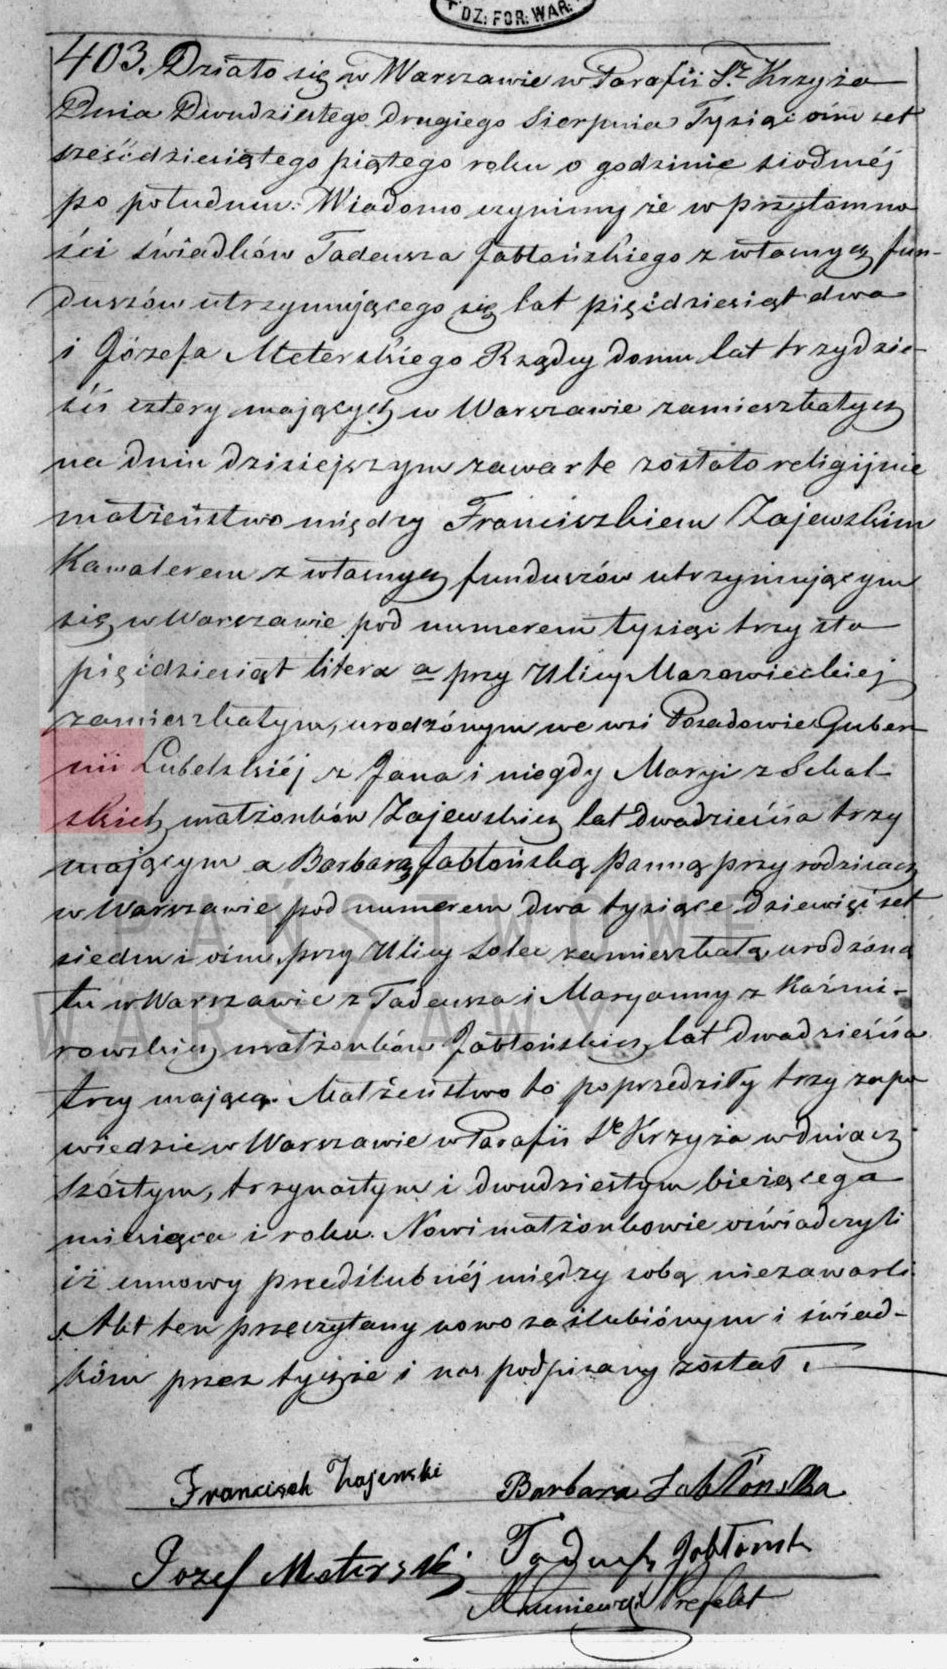 DZ: FOR: WAR:
403. Działo się w Warszawie w Parafii Sgo Krzyża
Dnia Dwudziestego drugiego Sierpnia Tysiąc ośm set
sześćdziesiątego piątego roku o godzinie siodméj
po południu. Wiadomo czynimy że w przytomno
ści świadków Tadeusza Jabłońskiego z własnych fun-
duszów utrzymującego się lat pięćdziesiąt dwa
i Józefa Meterskiego Rządcy domu lat trzydzie-
ści cztery mających w Warszawie zamieszkałych
na dniu dzisiejszym zawarte zostało religijnie
małżeństwo między Franciszkiem Zajewskim
Kawalerem z własnych funduszów utrzymującym
się w Warszawie pod numerem tysiąc trzysta
pięćdziesiąt litera a przy Ulicy Mazowieckiej
zamieszkałym, urodzonym we wsi Posadowie Guber
nii Lubelskiéj z Jana i niegdy Maryi z Sekal-
skich małżonków Zajewskich lat dwadzieścia trzy
mającym a Barbarą Jabłońską Panną przy rodzicach
w Warszawie pod numerem dwa tysiące dziewięćset
siedm i ośm przy Ulicy Solec zamieszkałą, urodzoną
tu w Warszawie z Tadeusza i Maryanny z Kaźmi-
rowskich małżonków Jabłońskich lat dwadzieścia
trzy mającą. Małżeństwo to poprzedziły trzy zapo
wiedzie w Warszawie w Parafii Sgo Krzyża w dniach
szóstym, trzynastym i dwudziestym bieżącego
miesiąca i roku. Nowi małżonkowie oświadczyli
iż umowy przedślubnéj między sobą niezawarli.
Akt ten przeczytany nowozaślubiónym i świad-
kóm przez tychże i nas podpisany został.
PAŃSTWOWE
WARSZAWY
Franciszek Zajewski Barbara Jabłońska
Jozef Meterski Tadeusz Jabłoński
Prefekt